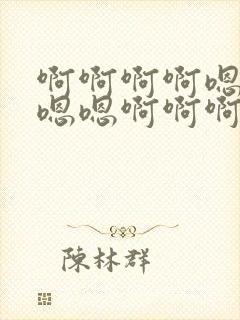 啊啊啊啊嗯
嗯嗯啊啊啊
陳林群